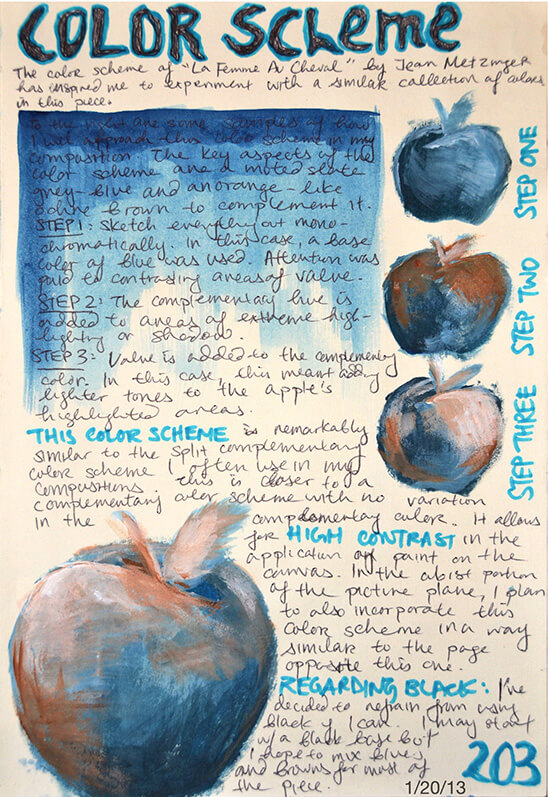 COLOR SCHEME
The color scheme of "La Femme Au Cheval" by Jean Metzinger
has inspired me to experiment with a similar collection of colors
in this piece.
To the right are some samples of how
I will approach this color scheme in my
composition. The key aspects of the
color scheme are a muted slate
grey-blue and an orange-like
ochre brown to complement it.
STEP 1: Sketch everything out mono-
chromatically. In this case, a base
color of blue was used. Attention was
paid to contrasting areas of value.
STEP 2: The complementary hue is
added to areas of extreme high-
lighting or shadow.
STEP 3: Value is added to the complementary
color. In this case, this meant adding
lighter tones to the apple's
highlighted areas.
STEP ONE
STEP TWO
STEP THREE
THIS COLOR SCHEME is remarkably
similar to the split complementary
color scheme I often use in my
compositions. This is closer to a
complementary color scheme with no variation
in the complementary color. It allows
for HIGH CONTRAST in the
application of paint on the
canvas. In the cubist portion
of the picture plane, I plan
to also incorporate this
color scheme in a way
similar to the page
opposite this one.
REGARDING BLACK: I've
decided to refrain from using
black if I can. I may start
w/a black base but
I hope to mix blues
and browns for most of
the piece.
203
1/20/13